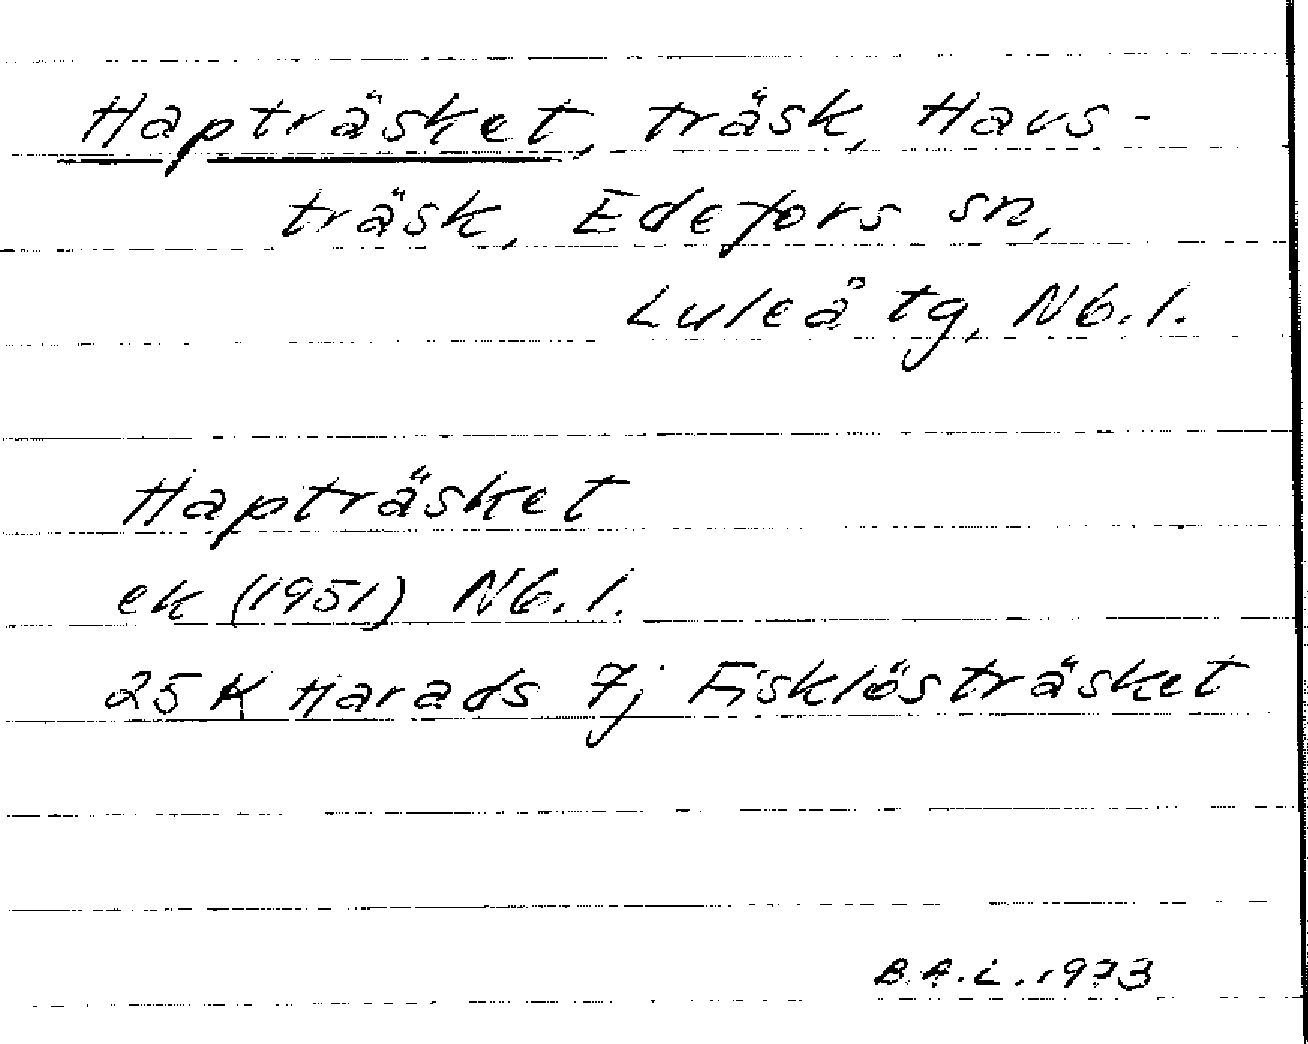 Hapträsket, träsk, Havs-
träsk, Edefors sn,
Luleå tg, Nb.l.
Hapträsket
ek (1951) Nb.l.
25 K Harads 7j Fisklösträsket
B.A.L. 1973